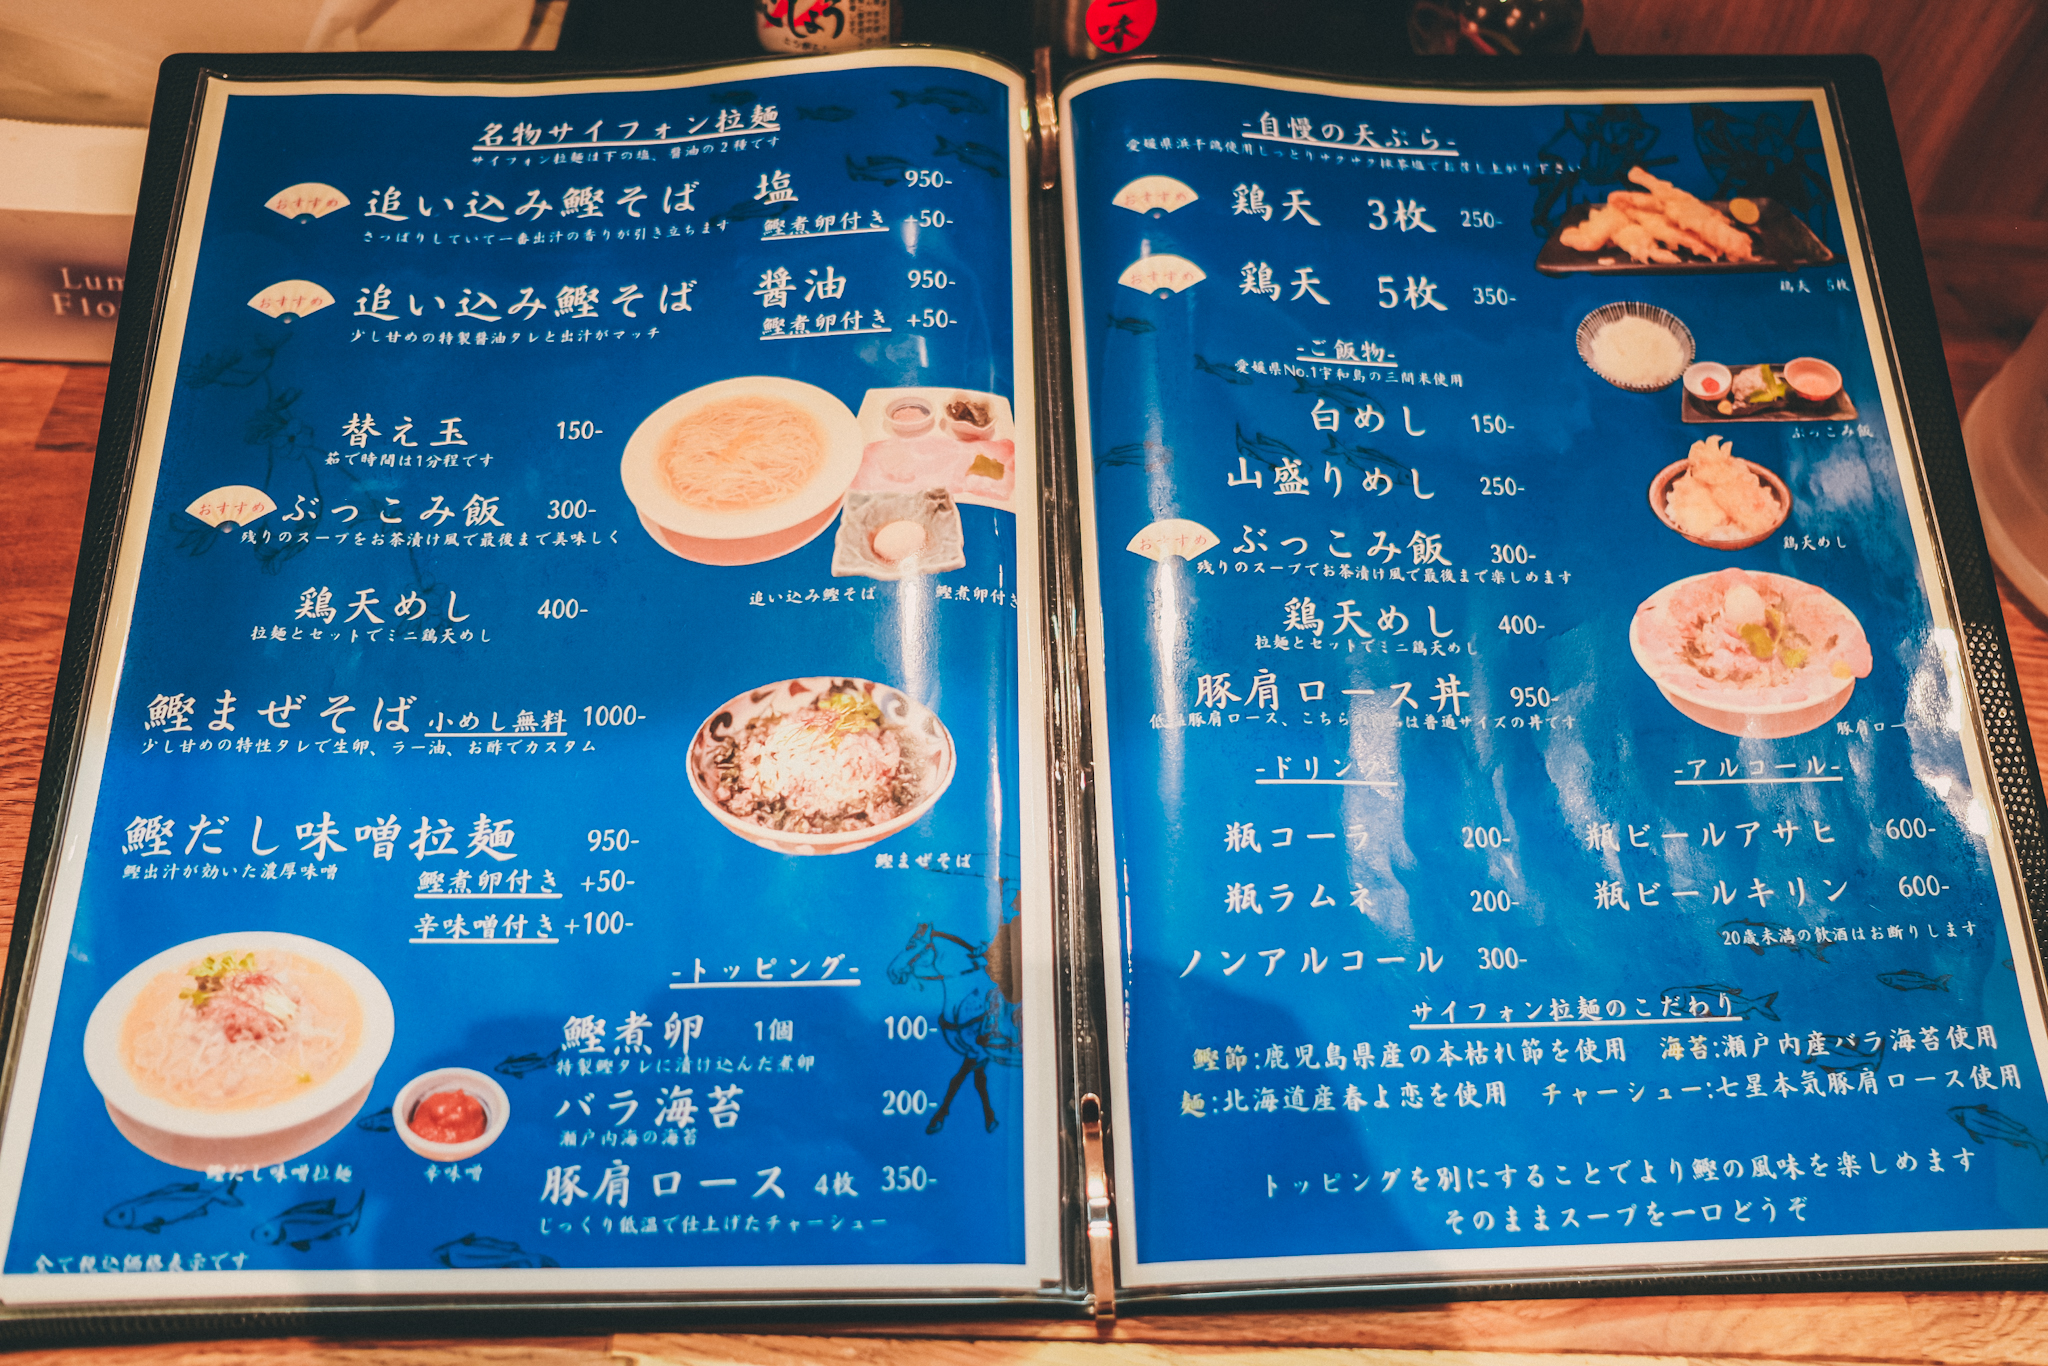 一味
Lum
Flo
名物サイフォン拉麺
サイフォン拉麺は下の塩、醤油の2種です
おすすめ
追い込み鰹そば 塩 950-
さっぱりしていて一番出汁の香りが引き立ちます
鰹煮卵付き +50-
おすすめ
追い込み鰹そば 醤油 950-
少し甘めの特製醤油タレと出汁がマッチ
鰹煮卵付き +50-
替え玉 150-
茹で時間は1分程です
おすすめ
ぶっこみ飯 300-
残りのスープをお茶漬け風で最後まで美味しく
追い込み鰹そば
鰹煮卵付き
鶏天めし 400-
拉麺とセットでミニ鶏天めし
鰹まぜそば 小めし無料 1000-
少し甘めの特性タレで生卵、ラー油、お酢でカスタム
鰹まぜそば
鰹だし味噌拉麺 950-
鰹出汁が効いた濃厚味噌
鰹煮卵付き +50-
辛味噌付き +100-
鰹だし味噌拉麺
辛味噌
-トッピング-
鰹煮卵 1個 100-
特製鰹タレに漬け込んだ煮卵
バラ海苔 200-
瀬戸内海の海苔
豚肩ロース 4枚 350-
じっくり低温で仕上げたチャーシュー
全て税込価格表示です
-自慢の天ぷら-
愛媛県浜千鶏使用しっとりサクサク抹茶塩でお召し上がり下さい
おすすめ
鶏天 3枚 250-
おすすめ
鶏天 5枚 350-
鶏天 5枚
-ご飯物-
愛媛県No.1宇和島の三間米使用
白めし 150-
山盛りめし 250-
ぶっこみ飯
おすすめ
ぶっこみ飯 300-
残りのスープでお茶漬け風で最後まで楽しめます
鶏天めし
鶏天めし 400-
拉麺とセットでミニ鶏天めし
豚肩ロース丼 950-
豚肩ロース、こちらの は普通サイズの丼です
豚肩ロー
-ドリンク-
瓶コーラ 200-
瓶ラムネ 200-
ノンアルコール 300-
-アルコール-
瓶ビールアサヒ 600-
瓶ビールキリン 600-
20歳未満の飲酒はお断りします
サイフォン拉麺のこだわり
鰹節:鹿児島県産の本枯れ節を使用 海苔:瀬戸内産バラ海苔使用
麺:北海道産春よ恋を使用 チャーシュー:七星本気豚肩ロース使用
トッピングを別にすることでより鰹の風味を楽しめます
そのままスープを一口どうぞ